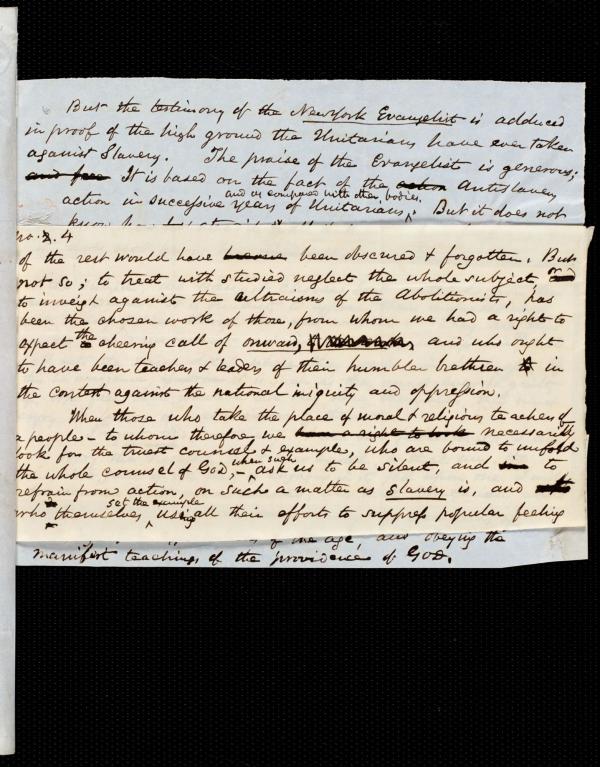 But the testimony of the NewYork Evangelist is adduced
in proof of the high ground the Unitarians have ever taken
against Slavery. The praise of the Evangelist is generous;
and free It is based on the fact of the action Antislavery
and as compared with other bodies.
action in successive years of Unitarians, But it does not
No. 3. 4
of the rest would have become been obscured & forgotten. But
not so; to treat with studied neglect the whole subject, and
to inveigh against the ultraisms of the Abolitionists, has
been the chosen work of those, from whom we had a right to
expect the cheering call of onward, and who ought
to have been teachers & leaders of their humbler brethren in
the contest against the national iniquity and oppression.
When those who take the place of moral & religious teachers of
a people - to whom therefore we have a right to look necessarily
look for the truest counsel & example, who are bound to unfold
the whole counsel of God, - when such ask us to be silent, and to
refrain from action, on such a matter as slavery is, and
who themselves set the example using all their efforts to suppress popular feeling
of the age, and obeying the
manifest teachings of the providence of GOD.